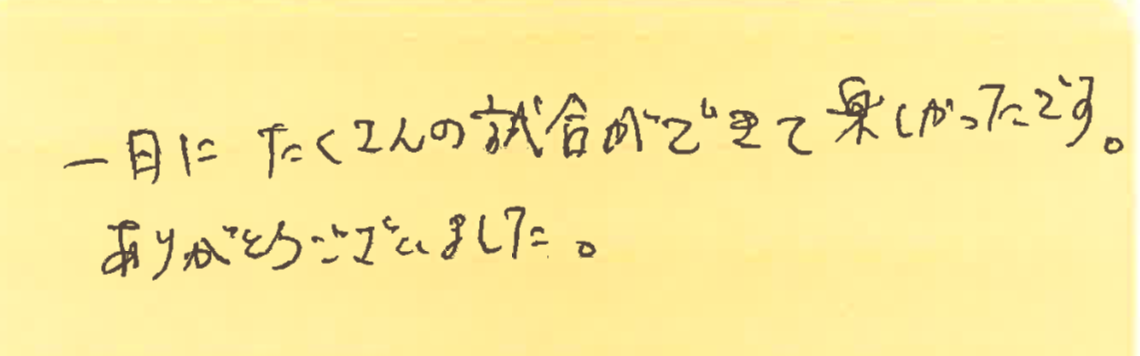 一日にたくさんの試合ができて楽しかったです。
ありがとうございました。